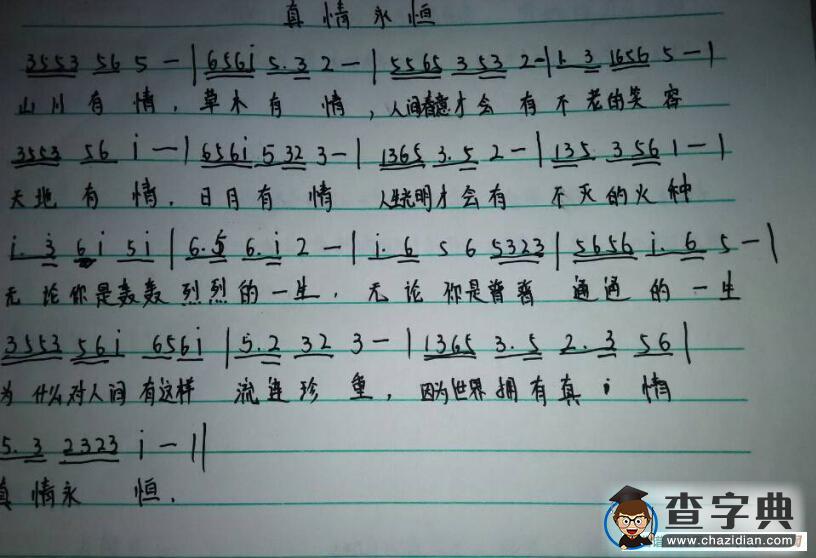 真情永恒
3553 56 5 - | 6561 5.3 2 - | 5565 353 2 - | 1.3 1656 5 - |
山川有情，草木有情，人间有意才会有不老的笑容
3553 56 i - | 656i 5 32 3 - | 1365 3.5 2 - | 135 3 56 1 - |
天地有情，日月有情 人生光明才会有不灭的火种
i. 3 6i 5i | 6.5 6.i 2 - | i.6 5 6 5323 | 5656 i.6 5 - |
无论你是轰轰烈烈的一生，无论你是普普通通的一生
3553 56i 656i | 5.2 32 3 - | 1365 3.5 2.3 56 |
为什么对人间有这样流连珍重，因为世界拥有真i情
5.3 2323 i - ||
真情永恒.
查字典
www.chazidian.com